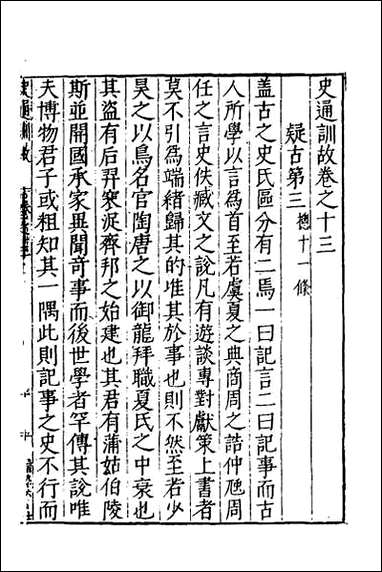 史通訓故卷之十三
疑古第三 總十一條
蓋古之史氏區分有二焉一曰記言二曰記事而古
人所學以言爲首至若虞夏之典商周之誥仲虺周
任之言史佚臧文之說凡有遊談專對獻策上書者
莫不引爲端緒歸其的准其於事也則不然至若少
昊之以鳥名官陶唐之以御龍拜職夏氏之中衰也
其盜有后羿寒浞齊邦之始建也其君有蒲姑伯陵
斯並開國承家異聞奇事而後世學者罕傳其說唯
夫博物君子或粗知其一隅此則記事之史不行而
史通訓故